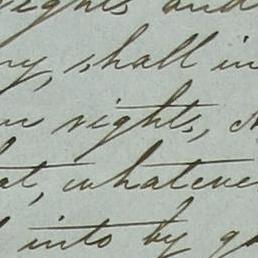 rights and
ny, shall in
rights,
at, whatever
into by